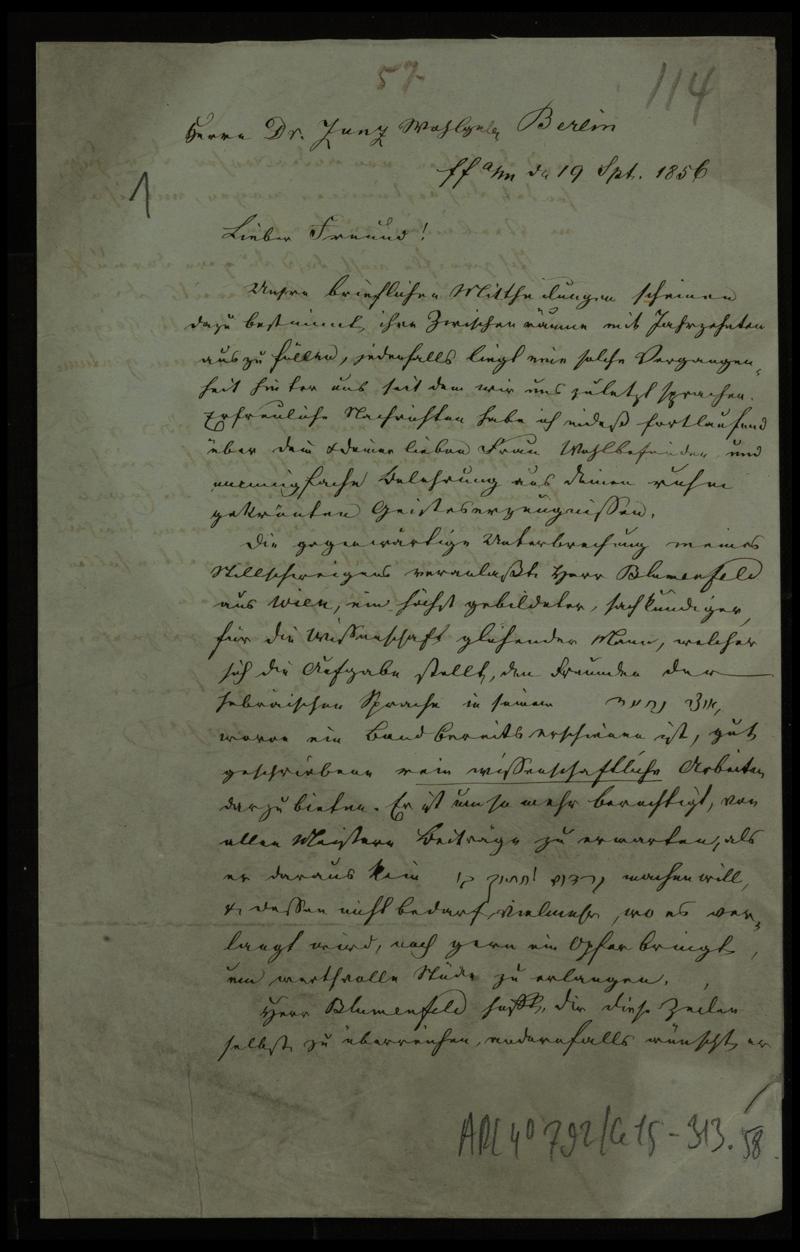 57
114
Herrn Dr. Zunz Wohlgeb. Berlin
ff a/m d. 19 Spt. 1856
1
Lieber Freund!
Unsre brieflichen Mittheilungen scheinen
dazu bestimmt, ihre Zwischenräume mit Jahrzehnten
auszufüllen, jedenfalls liegt eine solche Vergangen-
heit hinter uns seit dem wir uns zuletzt sprachen.
Erfreuliche Nachrichten habe ich indeß fortlaufend
über dein & deiner lieben Frau Wohlbefinden und
mannigfache Belehrung aus deinen ruhm
gekrönten Geisteserzeugnissen.
Die gegenwärtige Unterbrechung meines
Stillschweigens veranlaßt Herr Blumenfeld
aus Wien, ein höchst gebildeter, sachkundiger,
für die Wissenschaft glühender Mann, welcher
sich die Aufgabe stellt, den Freunden der
hebräischen Sprache in seinem אוצר נחמד,
wovon ein Band bereits erschienen ist, gut
geschriebene rein wissenschaftliche Arbeiten
darzubieten. Er ist um so mehr berechtigt, von
allen Meistern Beiträge zu erwarten, als
er daraus kein machen will,
& dessen nicht bedarf, vielmehr, wo es ver-
langt wird, noch gern ein Opfer bringt,
um werthvolle Stücke zu erlangen.
Herr Blumenfeld hofft, dir diese Zeilen
selbst zu überreichen, andernfalls wünscht er
ARC 4° 792/G15-313.
58